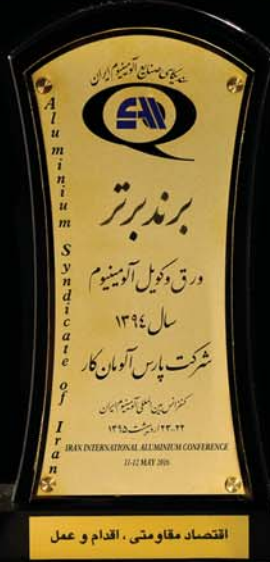 سندیکای صنایع آلومینیوم ایران
Aluminium Syndicate of Iran
برند برتر
ورق وکویل آلومینیوم
سال ۱۳۹٤
شرکت پارس آلومان کار
کنفرانس بین المللی آلومینیوم ایران
۲۲-۲۳ اردیبهشت ۱۳۹۵
IRAN INTERNATIONAL ALUMINIUM CONFERENCE
11-12 MAY 2016
اقتصاد مقاومتی ، اقدام و عمل